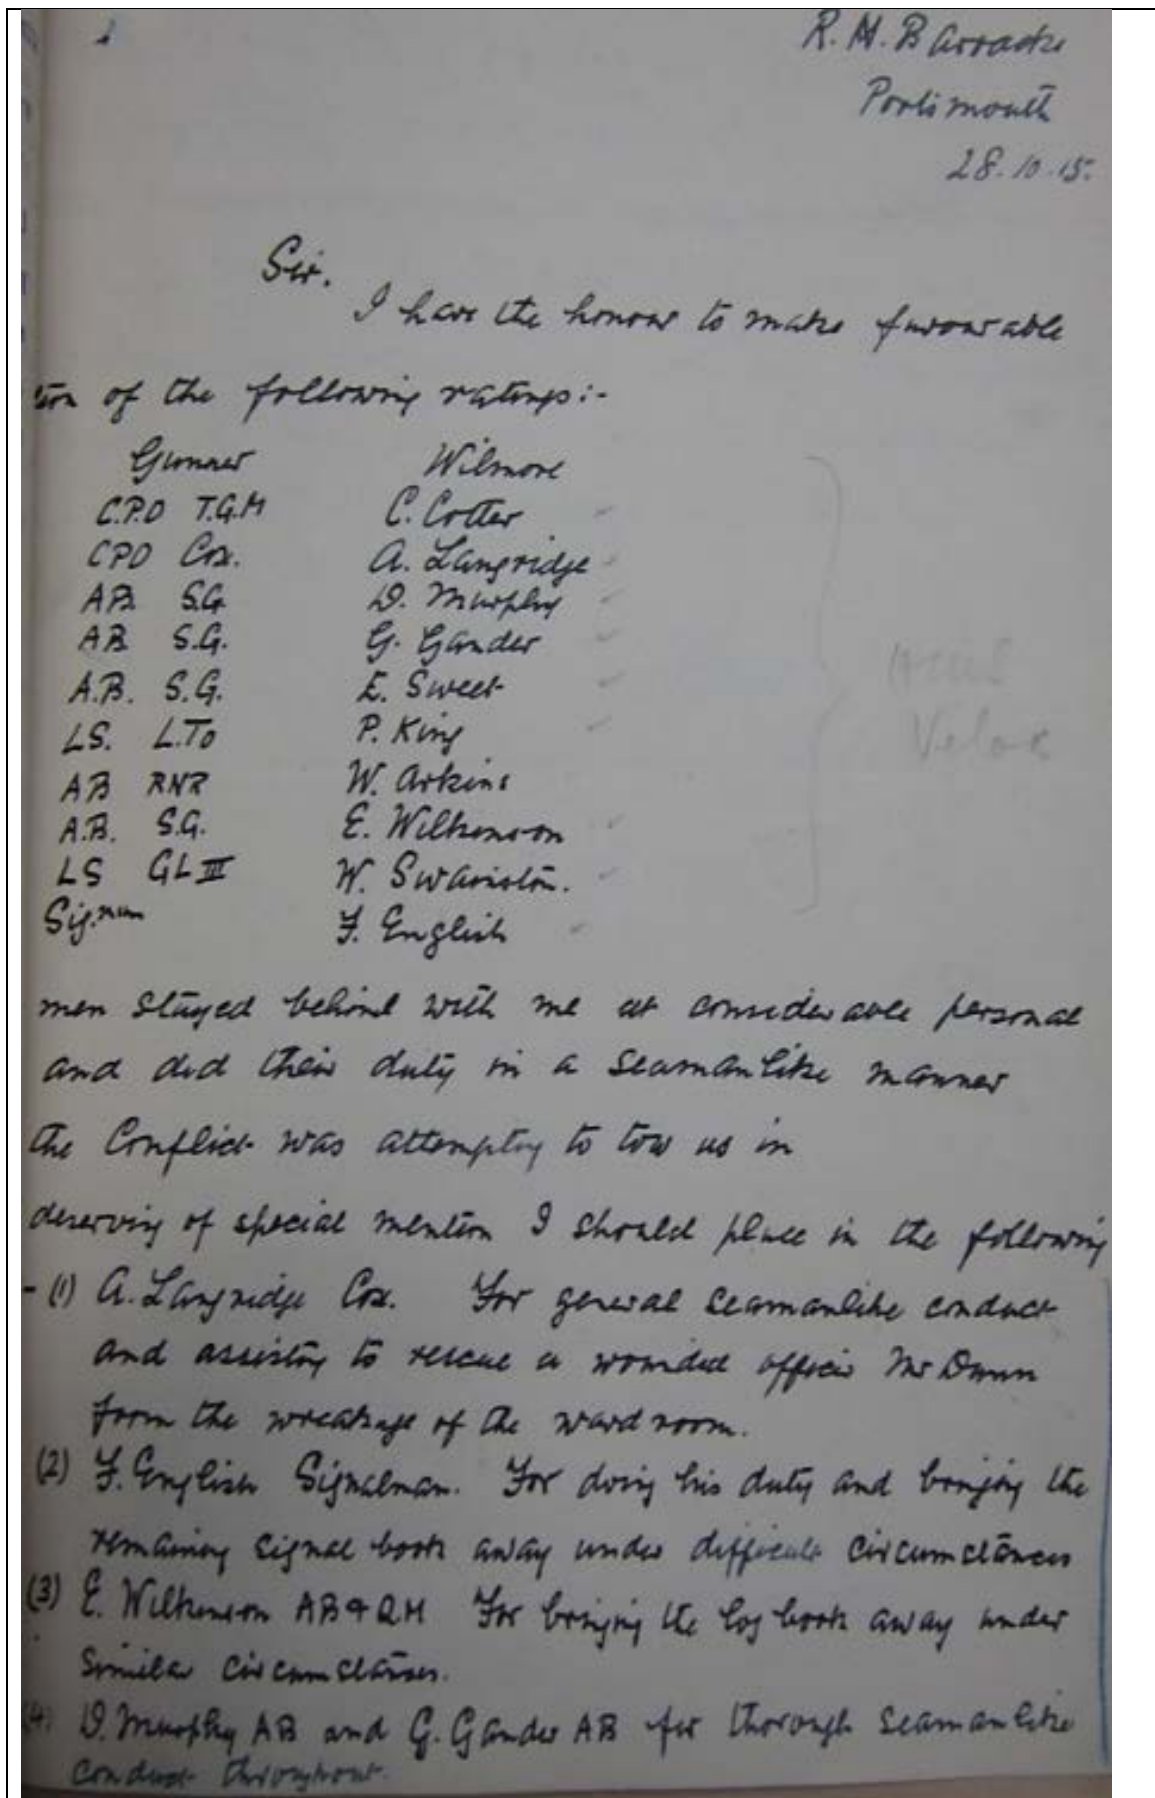 R. N. Barracks
Portsmouth
28.10.15.
Sir.
I have the honour to make favourable
tion of the following ratings:-
Gunner Wilmore
C.P.O T.G.M C. Cotter
CPO Cox. A. Langridge
AB S.G. D. Murphy
AB S.G. G. Gander
A.B. S.G. E. Sweet
LS. L.To P. King
AB RNR W. Arkins
A.B. S.G. E. Wilkenson
LS GL III W. Swainston.
Sig.man F. English
Velox
men stayed behind with me at considerable personal
and did their duty in a seamanlike manner
the Conflict was attemptg to tow us in
deserving of special mention I should place in the following
- (1) A. Langridge Cox. For general seamanlike conduct
and assistg to rescue a wounded officer Mr Dunn
from the wreakage of the ward room.
(2) F. English Signalman. For doing his duty and bringing the
remaining signal book away under difficult circumstances
(3) E. Wilkenson AB & QM For bringing the log book away under
similar circumstances.
(4) D. Murphy AB and G. Gander AB for thorough seamanlike
conduct throughout.